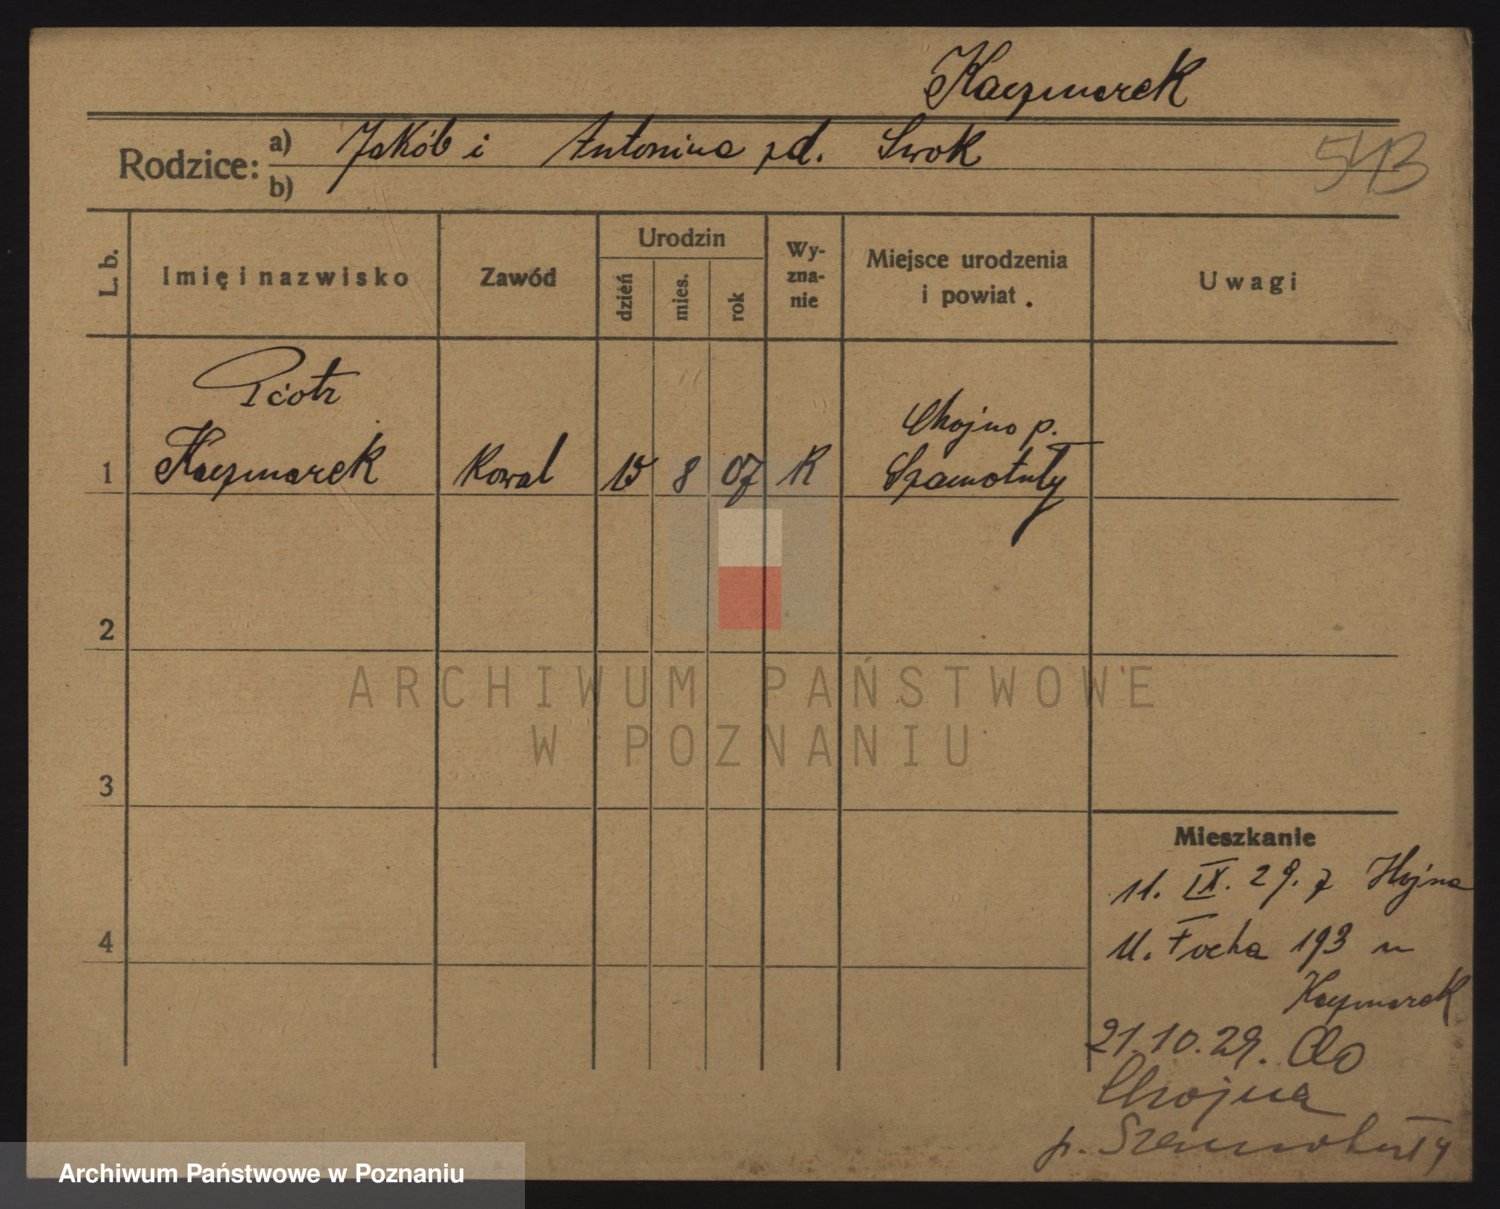 Kaczmarek
Rodzice: a) Jakób i Antonina zd.
b)
543
L. b.
Imię i nazwisko
Zawód
Urodzin
dzień
mies.
rok
Wy-
zna-
nie
Miejsce urodzenia
i powiat.
Uwagi
Piotr
Kaczmarek
1
Kowal
15
8
07
K
Chojno p.
Szamotuły
2
ARCHIWUM PAŃSTWOWE
W POZNANIU
3
Mieszkanie
11. IX. 29. z Hojna
Ul. Focha 193 u
Kaczmarek
4
21.10.29. do
Chojna
p. Szamotuły
Archiwum Państwowe w Poznaniu